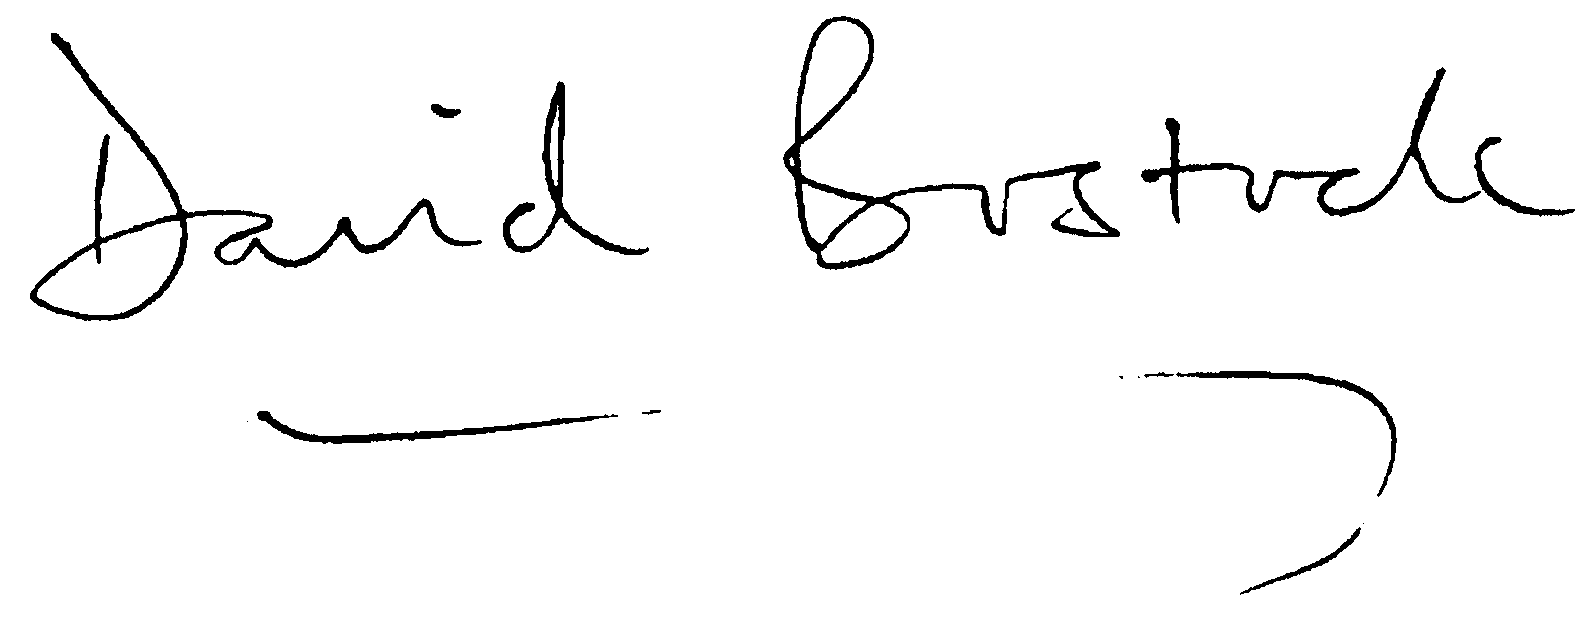 David Bostock